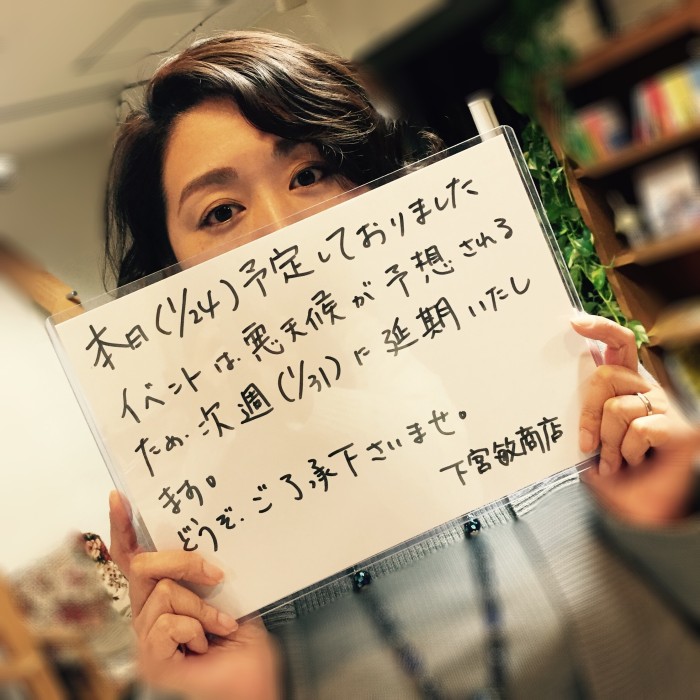 本日(1/24)予定しておりました
イベントは、悪天候が予想される
ため、次週(1/31)に延期いたし
ます。
どうぞ、ご了承下さいませ。
下宮敏商店